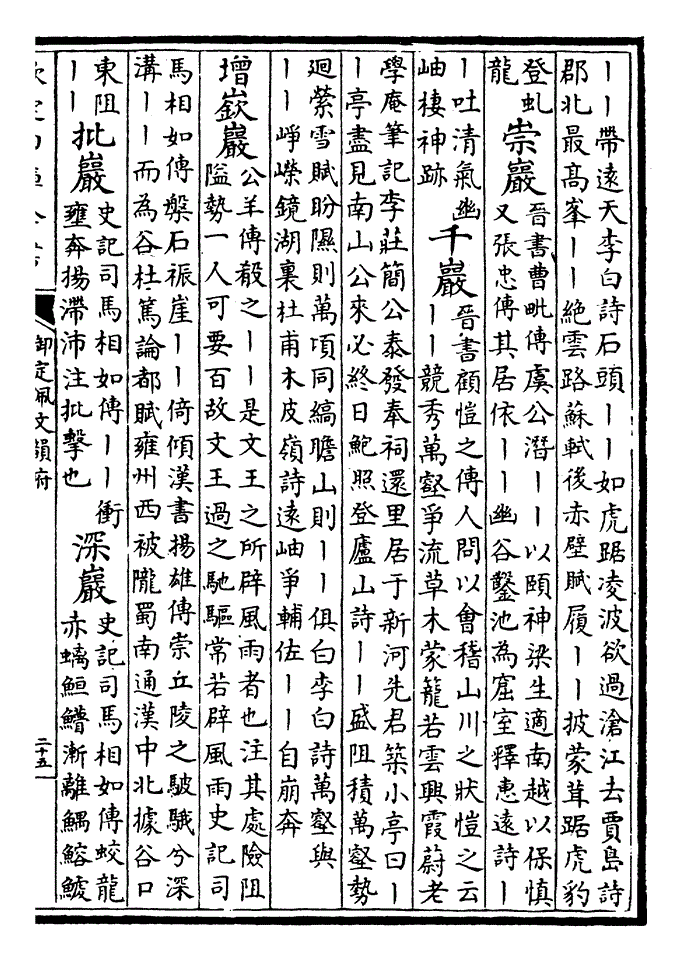 ｜｜帶遠天李白詩石頭｜｜如虎踞凌波欲過滄江去賈島詩
郡北最髙峯｜｜絶雲路蘇軾後赤壁賦履｜｜披蒙茸踞虎豹
登虬
龍
崇巖
晉書曹毗傳虞公潛｜｜以頤神梁生適南越以保慎
又張忠傳其居依｜｜幽谷鑿池為窟室釋惠遠詩｜
｜吐清氣幽
岫棲神跡
千巖
晉書顧愷之傳人問以會稽山川之狀愷之云
｜｜競秀萬壑爭流草木蒙籠若雲興霞蔚老
學庵筆記李莊簡公泰發奉祠還里居于新河先君築小亭曰｜
｜亭盡見南山公來必終日鮑照登廬山詩｜｜盛阻積萬壑勢
迴縈雪賦眄隰則萬頃同縞瞻山則｜｜俱白李白詩萬壑與
｜｜崢嶸鏡湖裏杜甫木皮嶺詩遠岫爭輔佐｜｜自崩奔
增嶔巖
公羊傳殽之｜｜是文王之所辟風雨者也注其處險阻
隘勢一人可要百故文王過之馳驅常若辟風雨史記司
馬相如傳槃石裖崖｜｜倚傾漢書揚雄傳崇丘陵之駊騀兮深
溝｜｜而為谷杜篤論都賦雍州西被隴蜀南通漢中北據谷口
東阻
｜｜
批巖
史記司馬相如傳｜｜衝
壅奔揚滯沛注批擊也
深巖
史記司馬相如傳蛟龍
赤螭䱭䲛漸離鰅鰫鰬
欽定四庫全書
御定佩文韻府
二十五